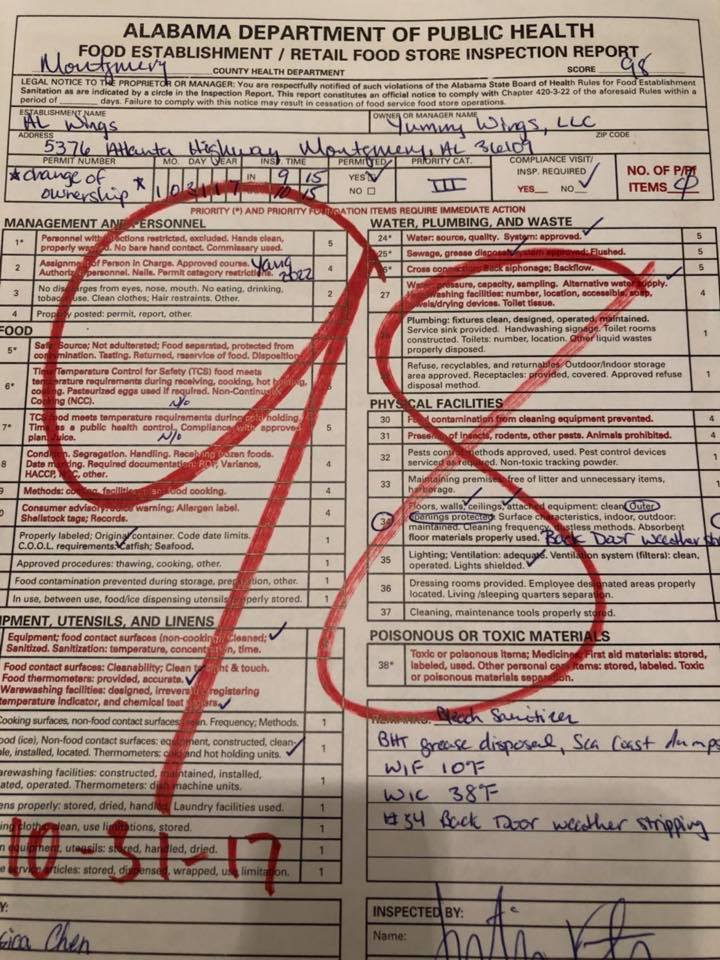 ALABAMA DEPARTMENT OF PUBLIC HEALTH
FOOD ESTABLISHMENT / RETAIL FOOD STORE INSPECTION REPORT
Montgmery COUNTY HEALTH DEPARTMENT SCORE 98
LEGAL NOTICE TO THE PROPRIETOR OR MANAGER: You are respectfully notified of such violations of the Alabama State Board of Health Rules for Food Establishment
Sanitation as are indicated by a circle in the Inspection Report. This report constitutes an official notice to comply with Chapter 420-3-22 of the aforesaid Rules within a
period of ______ days. Failure to comply with this notice may result in cessation of food service food store operations.
ESTABLISHMENT NAME OWNER OR MANAGER NAME
AL Wings Yummy Wings, LLC
ADDRESS ZIP CODE
5376 Atlanta Highway Montgomery, AL 36109
PERMIT NUMBER MO. DAY YEAR INSP. TIME PERMITTED PRIORITY CAT. COMPLIANCE VISIT/
INSP. REQUIRED NO. OF P/PI
ITEMS
*change of
ownership* 10 31 17 IN 9 15 YES NO III YES NO
10 15
PRIORITY (*) AND PRIORITY FOUNDATION ITEMS REQUIRE IMMEDIATE ACTION
MANAGEMENT AND PERSONNEL
1* Personnel with infections restricted, excluded. Hands clean,
properly washed. No bare hand contact. Commissary used. 5
2 Assignment of Person in Charge. Approved course. Yang
Authorized personnel. Nails. Permit category restrictions. 2022 4
3 No discharges from eyes, nose, mouth. No eating, drinking,
tobacco use. Clean clothes; Hair restraints. Other. 2
4 Properly posted: permit, report, other. 1
FOOD
5* Safe; Source; Not adulterated; Food separated, protected from
contamination. Tasting. Returned, reservice of food. Disposition
6* Time/Temperature Control for Safety (TCS) food meets
temperature requirements during receiving, cooking, hot holding,
cooling. Pasteurized eggs used if required. Non-Continuous
Cooking (NCC). N/O
7* TCS food meets temperature requirements during cold holding.
Time as a public health control. Compliance with approved
plan. Juice. N/O 5
8 Condition. Segregation. Handling. Receiving frozen foods.
Date marking. Required documentation: ROP, Variance,
HACCP, NCC, other. 4
9 Methods: cooling, facilities, food cooking. 4
Consumer advisory; Juice warning; Allergen label.
Shellstock tags; Records. 4
Properly labeled; Original container. Code date limits.
C.O.O.L. requirements. Catfish; Seafood. 1
Approved procedures: thawing, cooking, other. 1
Food contamination prevented during storage, preparation, other. 1
In use, between use, food/ice dispensing utensils properly stored. 1
EQUIPMENT, UTENSILS, AND LINENS
Equipment; food contact surfaces (non-cooking) Cleaned;
Sanitized. Sanitization: temperature, concentration, time. 5
Food contact surfaces: Cleanability; Clean to sight & touch.
Food thermometers: provided, accurate.
Warewashing facilities: designed, irreversible registering
temperature indicator, and chemical test papers. 4
Cooking surfaces, non-food contact surfaces: clean. Frequency; Methods. 1
Food (ice), Non-food contact surfaces: equipment, constructed, clean-
able, installed, located. Thermometers: cold and hot holding units. 1
Warewashing facilities: constructed, maintained, installed,
operated. Thermometers: dish machine units. 1
Linens properly: stored, dried, handled. Laundry facilities used. 1
Wiping cloths: clean, use limitations, stored. 1
equipment, utensils: stored, handled, dried. 1
service articles: stored, dispensed, wrapped, use limitation. 1
WATER, PLUMBING, AND WASTE
24* Water: source, quality. System: approved. 5
25* Sewage, grease disposal system approved; Flushed. 5
26* Cross connection. Back siphonage; Backflow. 5
27 Water: pressure, capacity, sampling. Alternative water supply.
Handwashing facilities: number, location, accessible, soap,
towels/drying devices. Toilet tissue. 4
Plumbing: fixtures clean, designed, operated, maintained.
Service sink provided. Handwashing signage. Toilet rooms
constructed. Toilets: number, location. Other liquid wastes
properly disposed. 1
Refuse, recyclables, and returnables. Outdoor/Indoor storage
area approved. Receptacles: provided, covered. Approved refuse
disposal method. 1
PHYSICAL FACILITIES
30 Food contamination from cleaning equipment prevented. 4
31 Presence of insects, rodents, other pests. Animals prohibited. 4
32 Pests control methods approved, used. Pest control devices
serviced as required. Non-toxic tracking powder. 1
33 Maintaining premises: free of litter and unnecessary items,
harborage. 1
34 Floors, walls, ceilings, attached equipment: clean. Outer
openings protected. Surface characteristics, indoor, outdoor:
maintained. Cleaning frequency, dustless methods. Absorbent
floor materials properly used. Back Door weather
35 Lighting; Ventilation: adequate. Ventilation system (filters): clean,
operated. Lights shielded. 1
36 Dressing rooms provided. Employee designated areas properly
located. Living /sleeping quarters separation. 1
37 Cleaning, maintenance tools properly stored. 1
POISONOUS OR TOXIC MATERIALS
38* Toxic or poisonous items; Medicines, First aid materials: stored,
labeled, used. Other personal care items: stored, labeled. Toxic
or poisonous materials separation. 5
REMARKS: Bleach Sanitizer
BHT grease disposal, Sea Coast dumps
WIF 10°F
WIC 38°F
#34 Back Door weather stripping
98
10-31-17
INSPECTED BY:
Name:
Chen